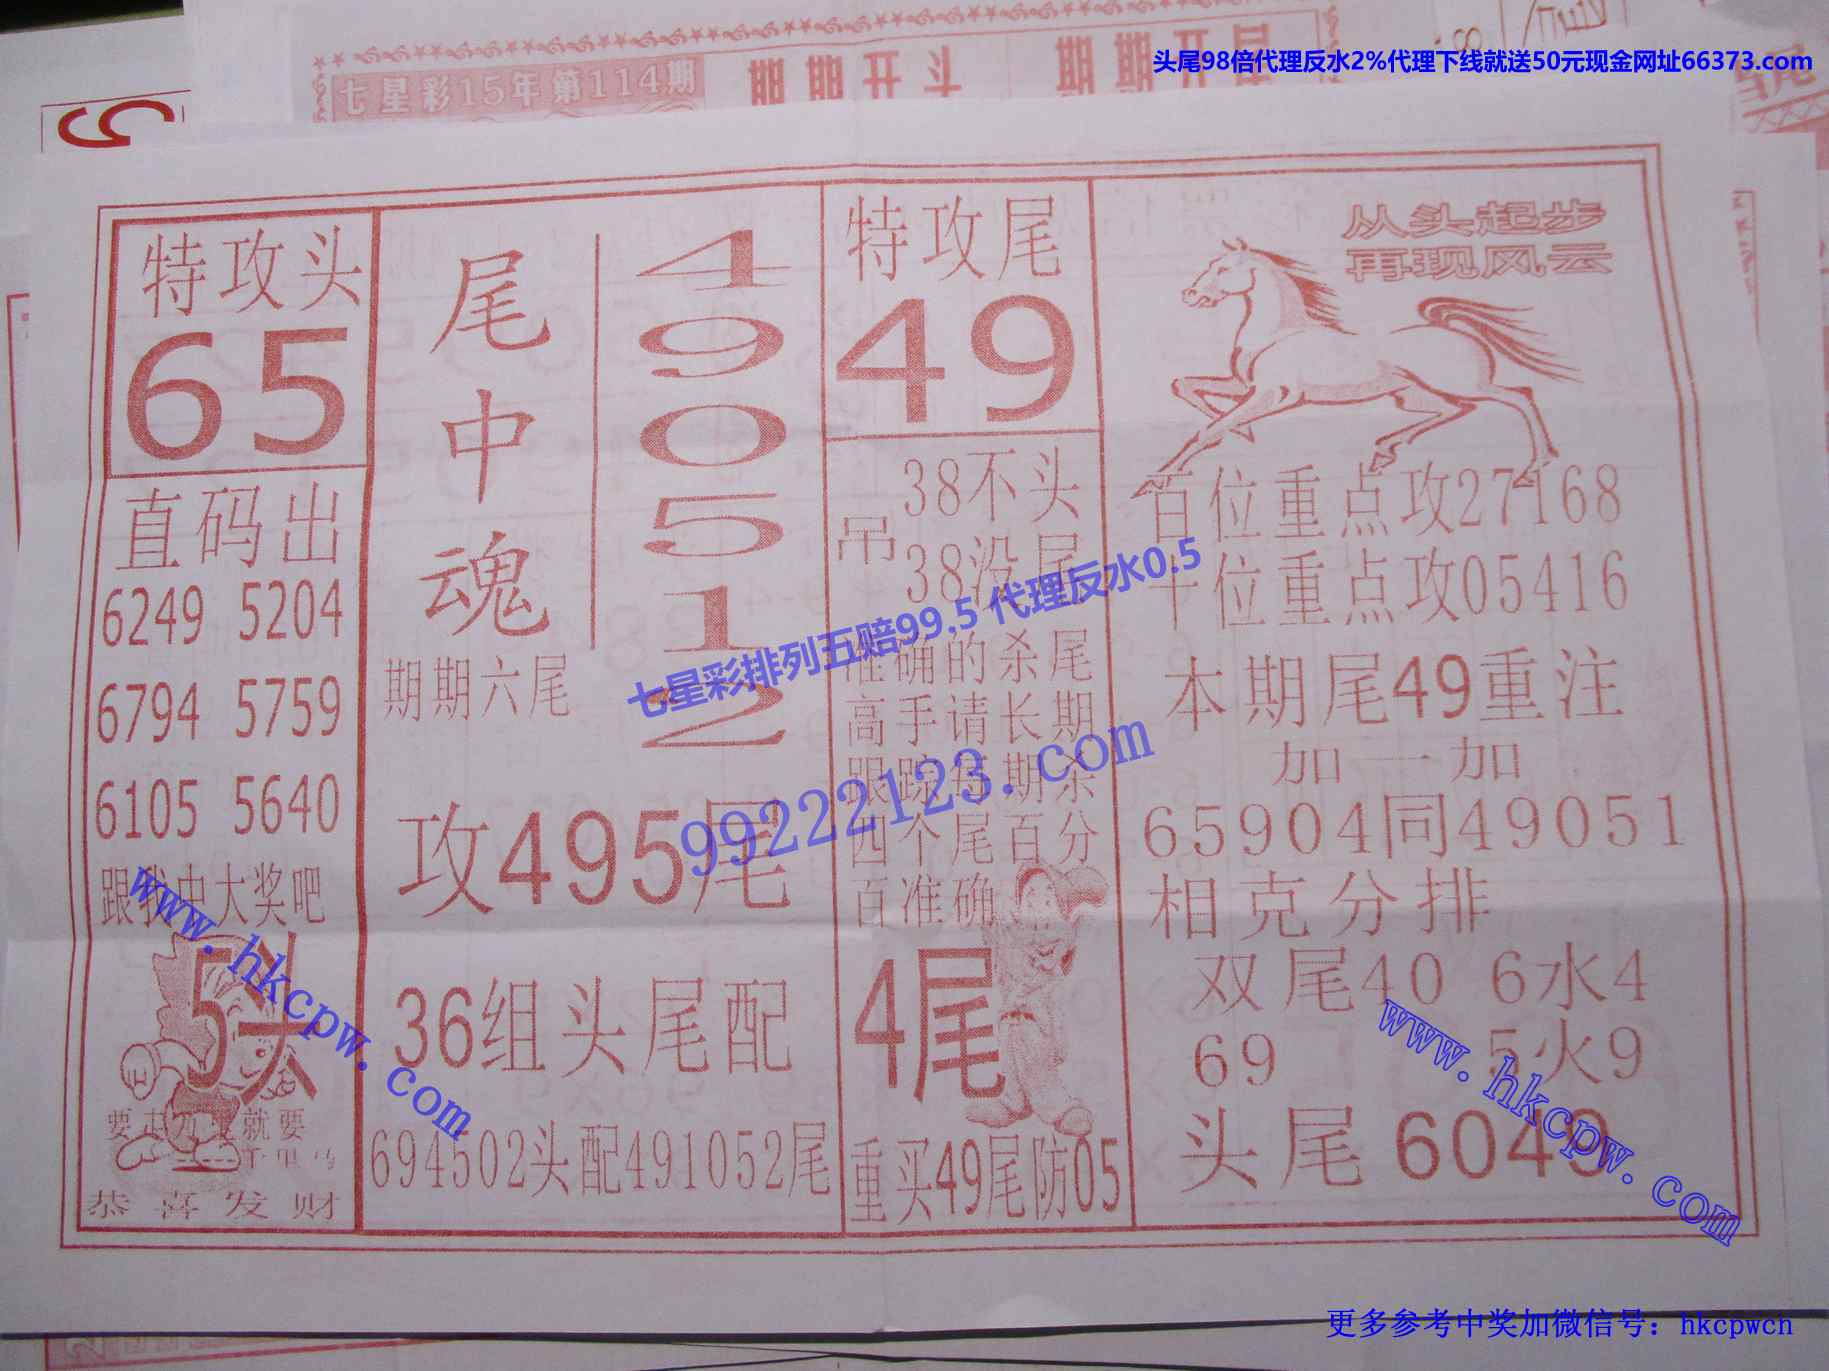 头尾98倍代理反水2%代理下线就送50元现金网址66373.com
七星彩15年第114期
特攻头
65
直码出
6249 5204
6794 5759
6105 5640
跟我中大奖吧
5头
就要
千里马
恭喜发财
尾中魂
4
9
0
5
1
2
期期六尾
攻495尾
36组头尾配
694502头配491052尾
特攻尾
49
吊
38不头
38没尾
准确的杀尾
高手请长期
跟踪每期杀
四个尾百分
百准确
4尾
重买49尾防05
从头起步
再现风云
百位重点攻27168
十位重点攻05416
本期尾49重注
加一加
65904同49051
相克分排
双尾40 6水4
69 5火9
头尾6049
七星彩排列五赔99.5 代理反水0.5
99222123.com
www.hkcpw.com
www.hkcpw.com
更多参考中奖加微信号：hkcpwcn